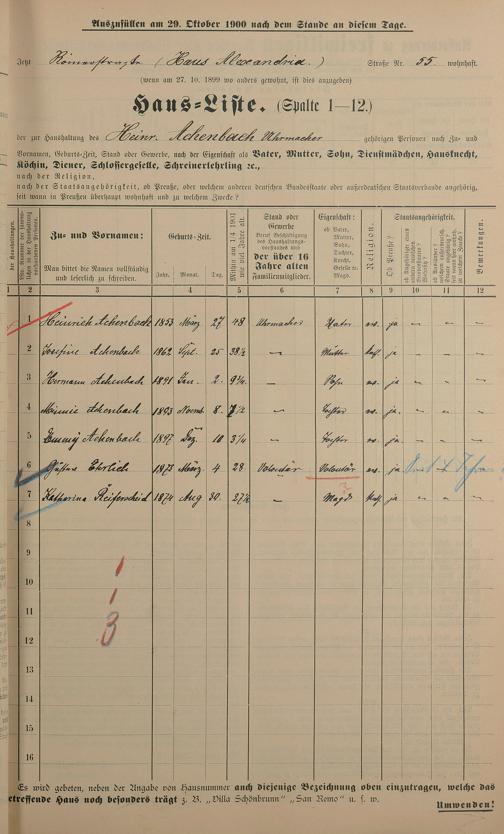 Auszufüllen am 29. Oktober 1900 nach dem Stande an diesem Tage.
Jetzt Römerstraße (Haus Alexandria.) Straße Nr. 55. wohnhaft.
(wenn am 27. 10. 1899 wo anders gewohnt, ist dies anzugeben)
Haus-Liste. (Spalte 1—12.)
der zur Haushaltung des Heinr. Achenbach Uhrmacher gehörigen Personen nach Zu- und
Vornamen, Geburts-Zeit, Stand oder Gewerbe, nach der Eigenschaft als Vater, Mutter, Sohn, Dienstmädchen, Hausknecht,
Köchin, Diener, Schlossergeselle, Schreinerlehrling ꝛc.,
nach der Religion,
nach der Staatsangehörigkeit, ob Preuße, oder welchem anderen deutschen Bundesstaate oder außerdeutschen Staatsverbande angehörig,
seit wann in Preußen überhaupt wohnhaft und zu welchem Zwecke?
der Haushaltungen.
Zu- und Vornamen:
Man bittet die Namen vollständig und leserlich zu schreiben.
Geburts-Zeit.
Jahr. Monat. Tag.
Mithin am 1/4 1901 wie viel Jahre alt.
Stand oder Gewerbe
der über 16 Jahre alten Familienmitglieder.
Eigenschaft:
ob Vater, Mutter, Sohn, Tochter, Knecht, Geselle u. Magd.
Religion.
Staatsangehörigkeit.
Ob Preuße?
Bemerkungen.
1 2 3 4 5 6 7 8 9 10 11 12
1 Heinrich Achenbach 1853 März 27 48 Uhrmacher Vater ev. ja — — —
2 Josefine Achenbach 1862 Spt. 25 38½ — Mutter kath. ja — — —
3 Hermann Achenbach 1891 Jan. 2. 9¾ — Sohn ev. ja — — —
4 Minnie Achenbach 1893 Novemb. 8. 7½ — Tochter ev. ja. — — —
5 Emmy Achenbach 1897 Dez. 10 3¼ — Tochter ev. ja. — — —
6 Gustav Ehrlich 1873 März. 4 28 Volontär Volontär ev. ja
7 Katharina Reifenscheid 1874 Aug 30. 27½ — Magd kath. ja — — —
8
9
10
11
12
13
14
15
16
1
1
3
Es wird gebeten, neben der Angabe von Hausnummer auch diejenige Bezeichnung oben einzutragen, welche das
betreffende Haus noch besonders trägt z. B. „Villa Schönbrunn" „San Remo" u. s. w.
Umwenden!